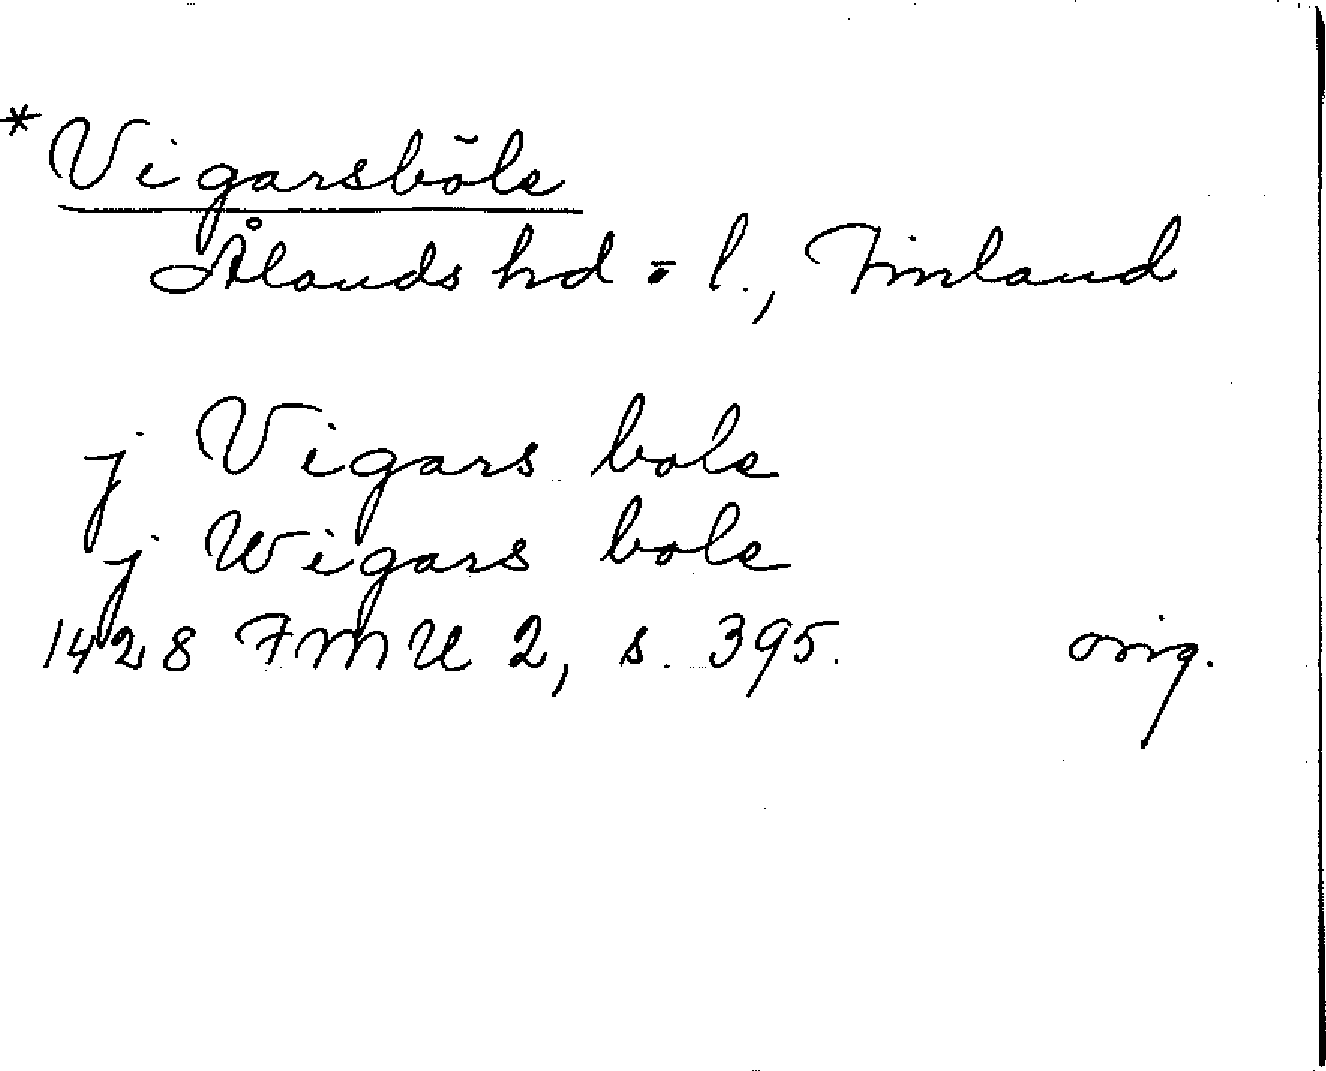 *Vigarsböle
Ålands hd = l., Finland
j Vigars bole
j Wigars bole
1428 FMU 2, s. 395. orig.